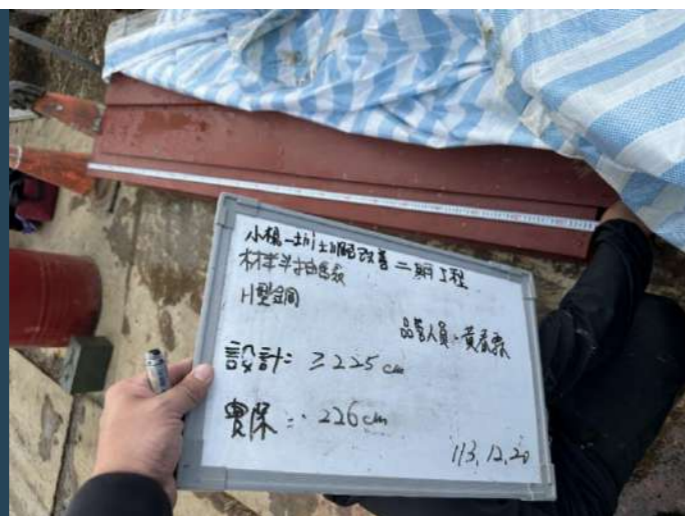 小楊一圳
改善二期工程
材料抽驗
H型鋼
品管人員:黃
設計:≥225cm
實際:226cm
113.12.20